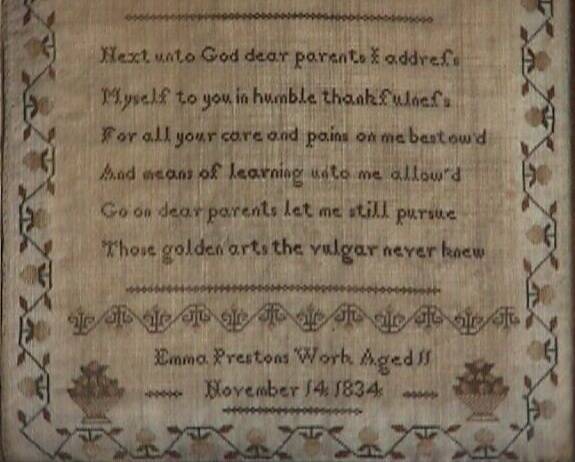 Next unto God dear parents I addreſs
Myself to you in humble thankfulneſs
For all your care and pains on me bestow'd
And means of learning unto me allow'd
Go on dear parents let me still pursue
Those golden arts the vulgar never knew
Emma Prestons Work Aged 11
November 14 1834